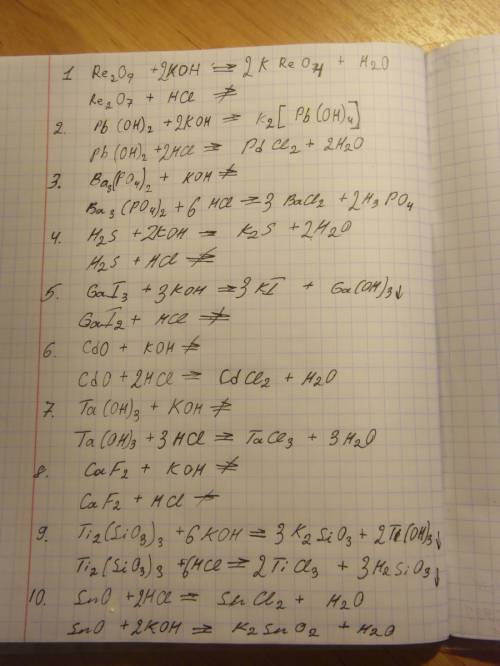 1 Re2O7 +2KOH ⇒ 2 K ReO4 + H2O
Re2O7 + HCl ≠
2. Pb(OH)2 +2KOH = K2[Pb(OH)4]
Pb(OH)2 +2HCl = PdCl2 + 2H2O
3. Ba3(PO4)2 + KOH ≠
Ba3(PO4)2 + 6 HCl = 3 BaCl2 + 2H3PO4
4. H2S + 2KOH = K2S + 2H2O
H2S + HCl ≠
5. GaI3 + 3KOH = 3KI + Ga(OH)3↓
GaI2 + HCl ≠
6. CdO + KOH ≠
CdO + 2HCl = CdCl2 + H2O
7. Ta(OH)3 + KOH ≠
Ta(OH)3 + 3HCl = TaCl3 + 3H2O
8. CaF2 + KOH ≠
CaF2 + HCl ≠
9. Ti2(SiO3)3 +6KOH = 3K2SiO3 + 2Ti(OH)3↓
Ti2(SiO3)3 +6HCl = 2TiCl3 + 3H2SiO3↓
10. SnO +2HCl = SnCl2 + H2O
SnO +2KOH = K2SnO2 + H2O